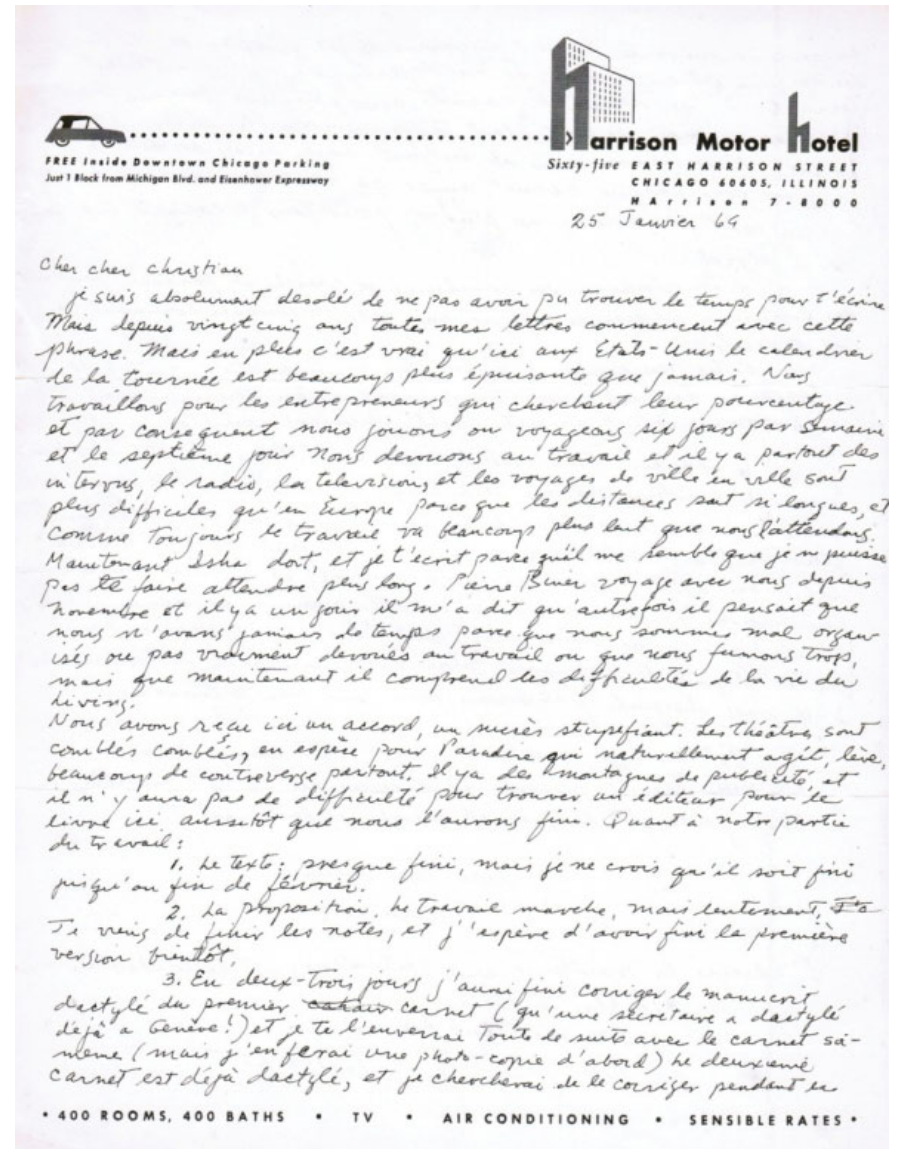 Harrison Motor Hotel
FREE Inside Downtown Chicago Parking
Just 1 Block from Michigan Blvd. and Eisenhower Expressway
Sixty-five EAST HARRISON STREET
CHICAGO 60605, ILLINOIS
HArrison 7-8000
25 Janvier 69
Cher cher Christian
je suis absolument desolé de ne pas avoir pu trouver le temps pour t'écrire
Mais depuis vingt cinq ans toutes mes lettres commencent avec cette
phrase. Mais en plus c'est vrai qu'ici aux Etats-Unis le calendrier
de la tournée est beaucoup plus épuisante que jamais. Nous
travaillons pour les entrepreneurs qui cherchent leur pourcentage
et par consequent nous jouons ou voyageons six jours par semaine
et le septième jour nous devouons au travail et il y a partout des
intervus, le radio, la television, et les voyages de ville en ville sont
plus difficiles qu'en Europe parce que les distances sont si longues, et
comme toujours le travail va beaucoup plus lent que nous l'attendons.
Maintenant Isha dort, et je t'écrit parce qu'il me semble que je n puisse
pas te faire attendre plus long. Pierre Biner voyage avec nous depuis
novembre et il y a un jours il m'a dit qu'autrefois il pensait que
nous n'avons jamais de temps parce que nous sommes mal organ-
isés ou pas vraiment devoués au travail ou que nous fumons trop,
mais que maintenant il comprend les difficultés de la vie du
Living.
Nous avons reçu ici un accord, un succès stupefiant. Les théâtres sont
comblés comblés, en espèce pour Paradise qui naturellement agit, lève,
beaucoup de contreverse partout. Il y a des montagnes de publicité, et
il n'y aura pas de difficulté pour trouver un éditeur pour le
livre ici aussitôt que nous l'aurons fini. Quant à notre partie
du travail:
1. Le texte: presque fini, mais je ne crois qu'il soit fini
jusqu'au fin de février.
2. La proposition. Le travail marche, mais lentement,
Je viens de finir les notes, et j'espère d'avoir fini la première
version bientôt.
3. En deux-trois jours j'aurai fini corriger le manuscrit
dactylé du premier carnet (qu'une secrétaire a dactylé
dejà a Genève!) et je te l'enverrai toute de suite avec le carnet soi-
meme (mais j'en ferai une photo-copie d'abord) Le deuxieme
carnet est déjà dactylé, et je chercherai de le corriger pendant
• 400 ROOMS, 400 BATHS • TV • AIR CONDITIONING • SENSIBLE RATES •